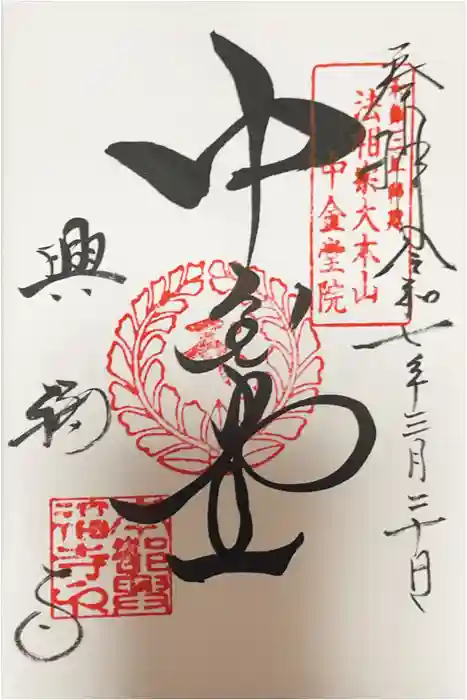 奉拝 令和七年三月二十日
法相宗大本山
中金堂院
中金堂
興福寺
南都興
福寺印